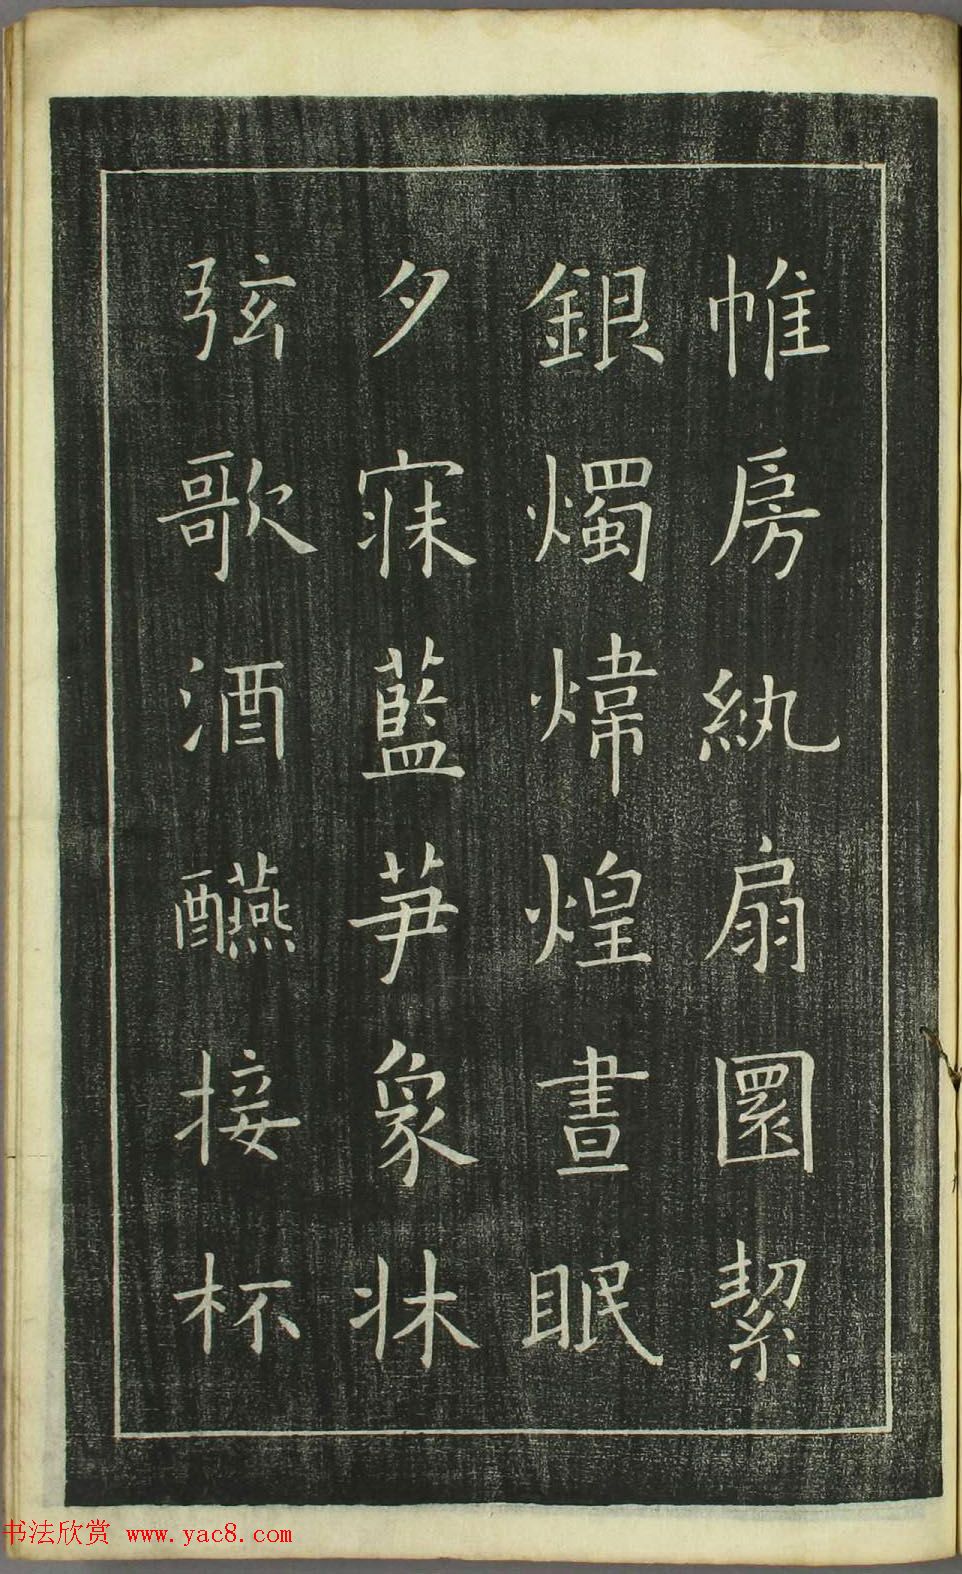 帷房紈扇圜絜
銀燭煒煌晝眠
夕寐藍笋象牀
弦歌酒醼接杯
书法欣赏 www.yac8.com